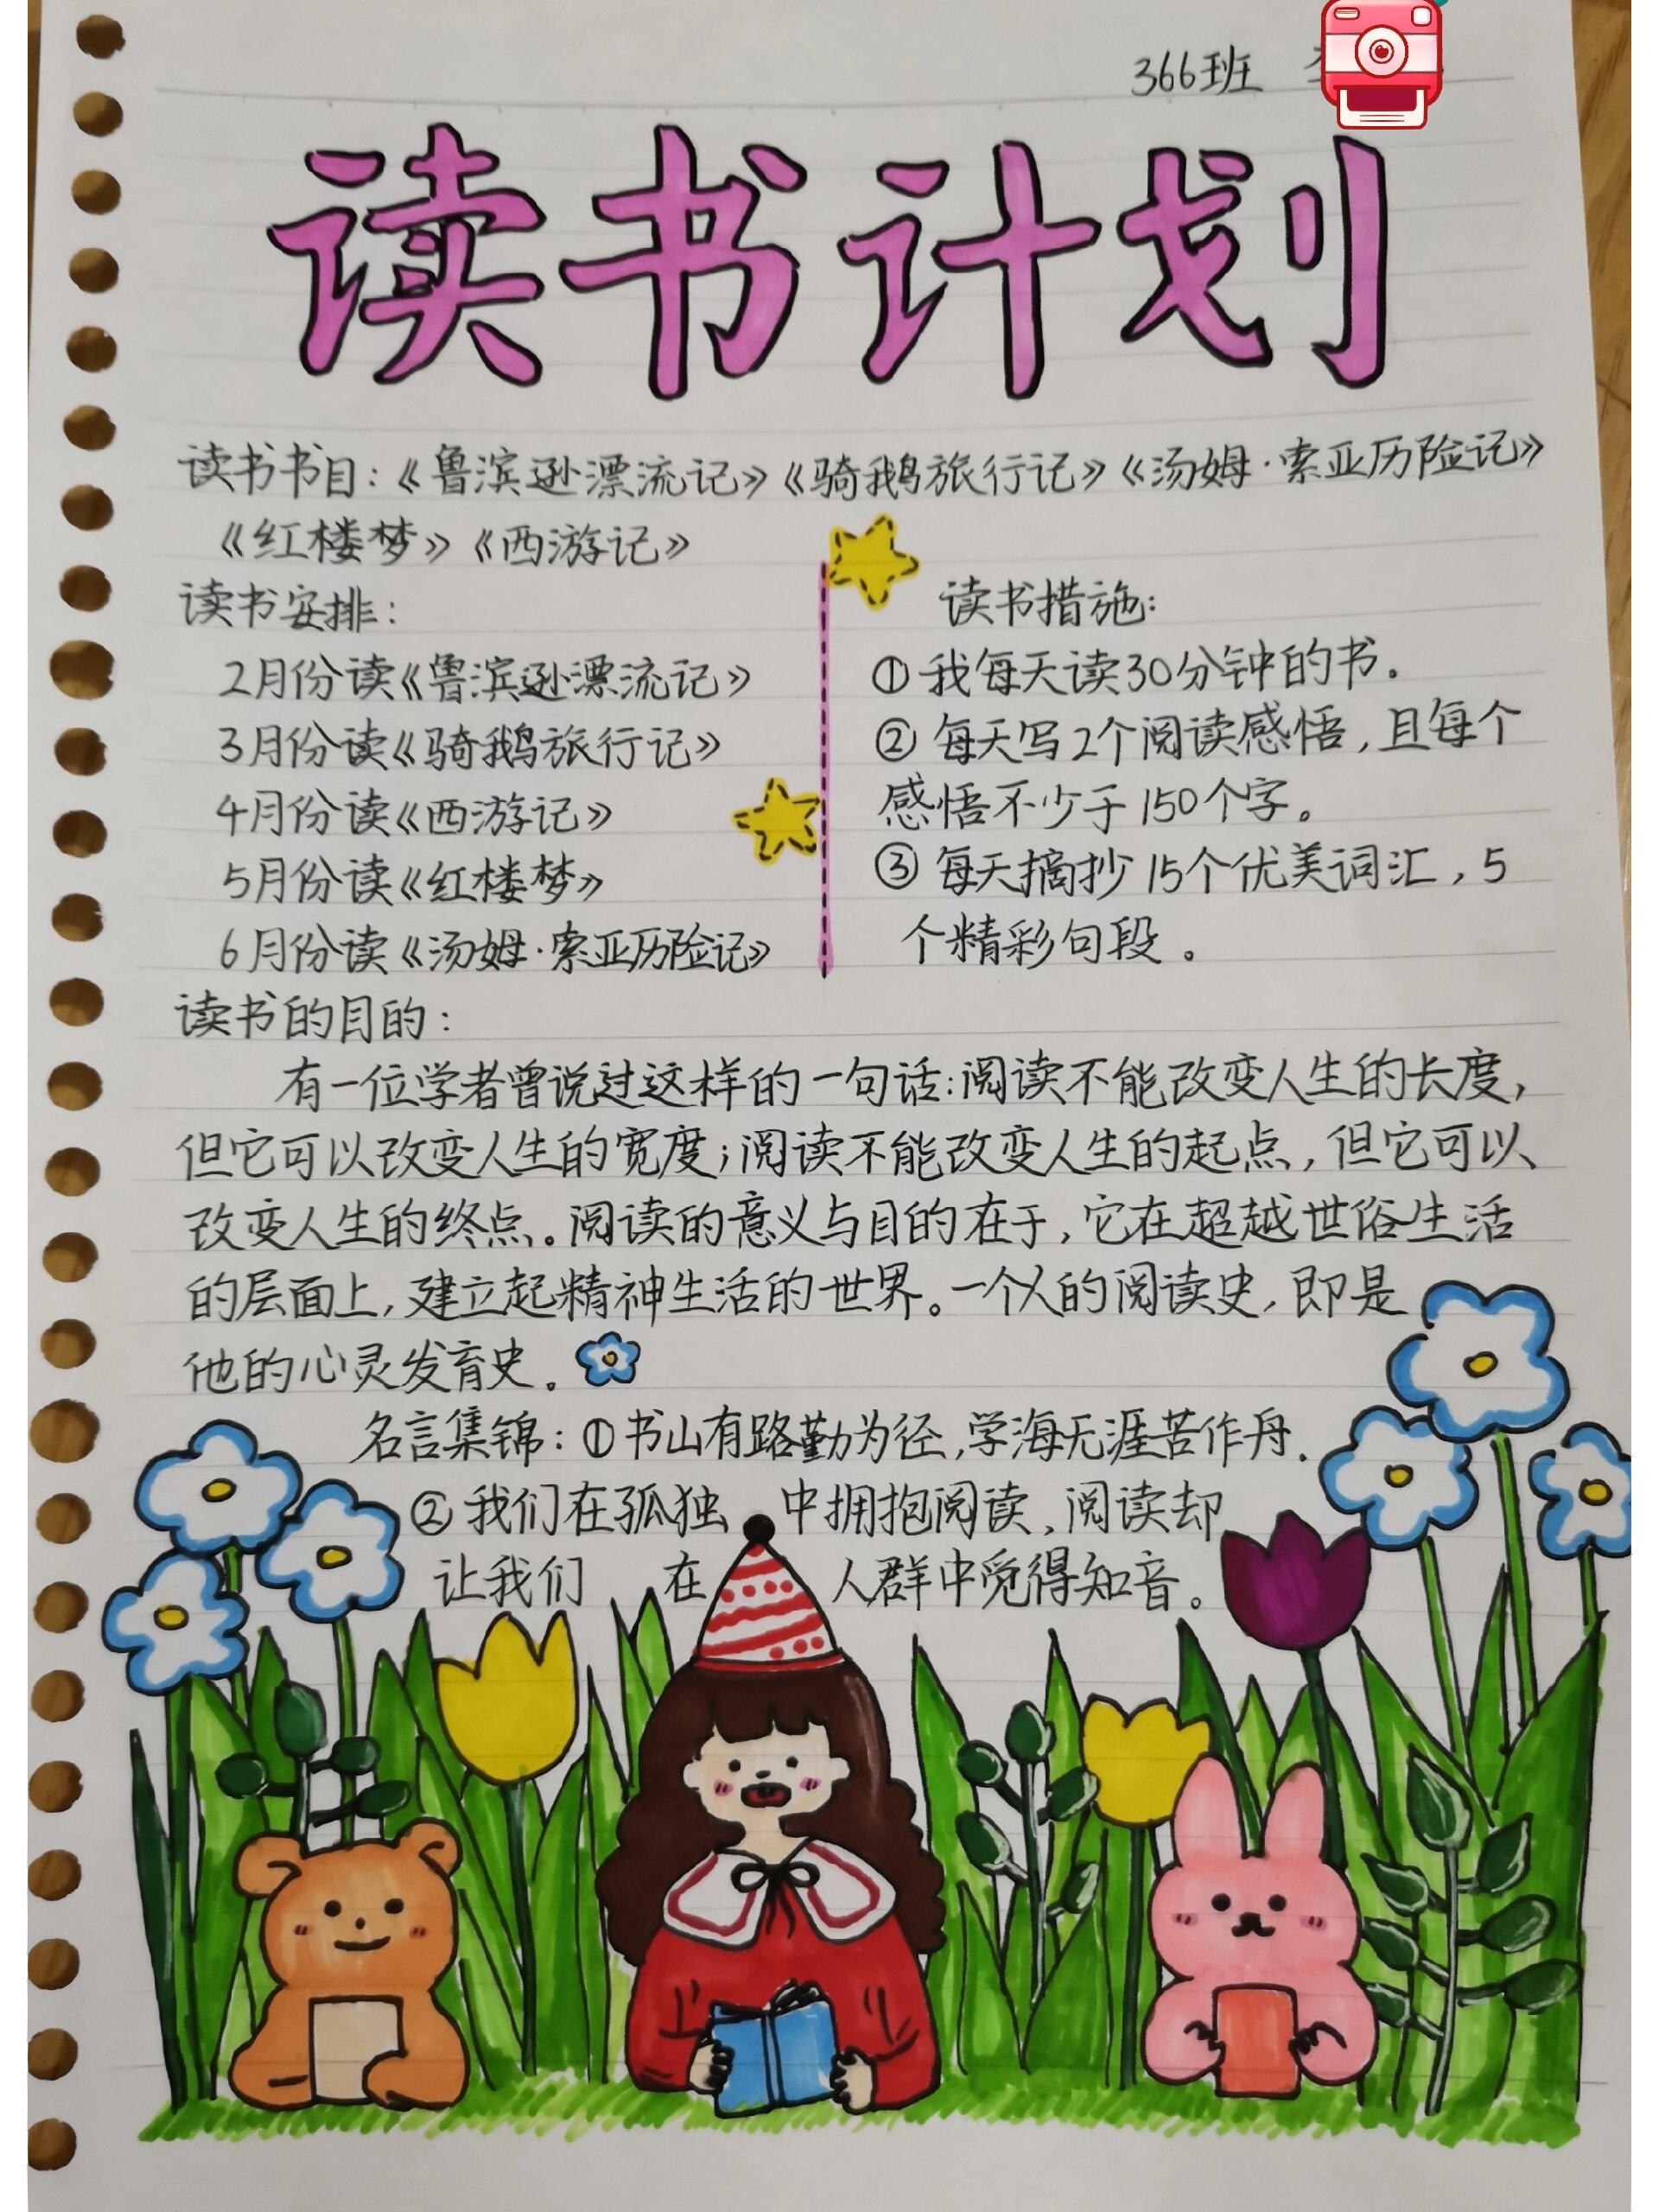 366班
读书计划
读书书目：《鲁滨逊漂流记》《骑鹅旅行记》《汤姆·索亚历险记》
《红楼梦》《西游记》
读书安排：
2月份读《鲁滨逊漂流记》
3月份读《骑鹅旅行记》
4月份读《西游记》
5月份读《红楼梦》
6月份读《汤姆·索亚历险记》
读书措施：
①我每天读30分钟的书。
②每天写2个阅读感悟，且每个
感悟不少于150个字。
③每天摘抄15个优美词汇，5
个精彩句段。
读书的目的：
有一位学者曾说过这样的一句话：阅读不能改变人生的长度，
但它可以改变人生的宽度；阅读不能改变人生的起点，但它可以
改变人生的终点。阅读的意义与目的在于，它在超越世俗生活
的层面上，建立起精神生活的世界。一个人的阅读史，即是
他的心灵发育史。
名言集锦：①书山有路勤为径，学海无涯苦作舟.
②我们在孤独中拥抱阅读，阅读却
让我们在人群中觅得知音。